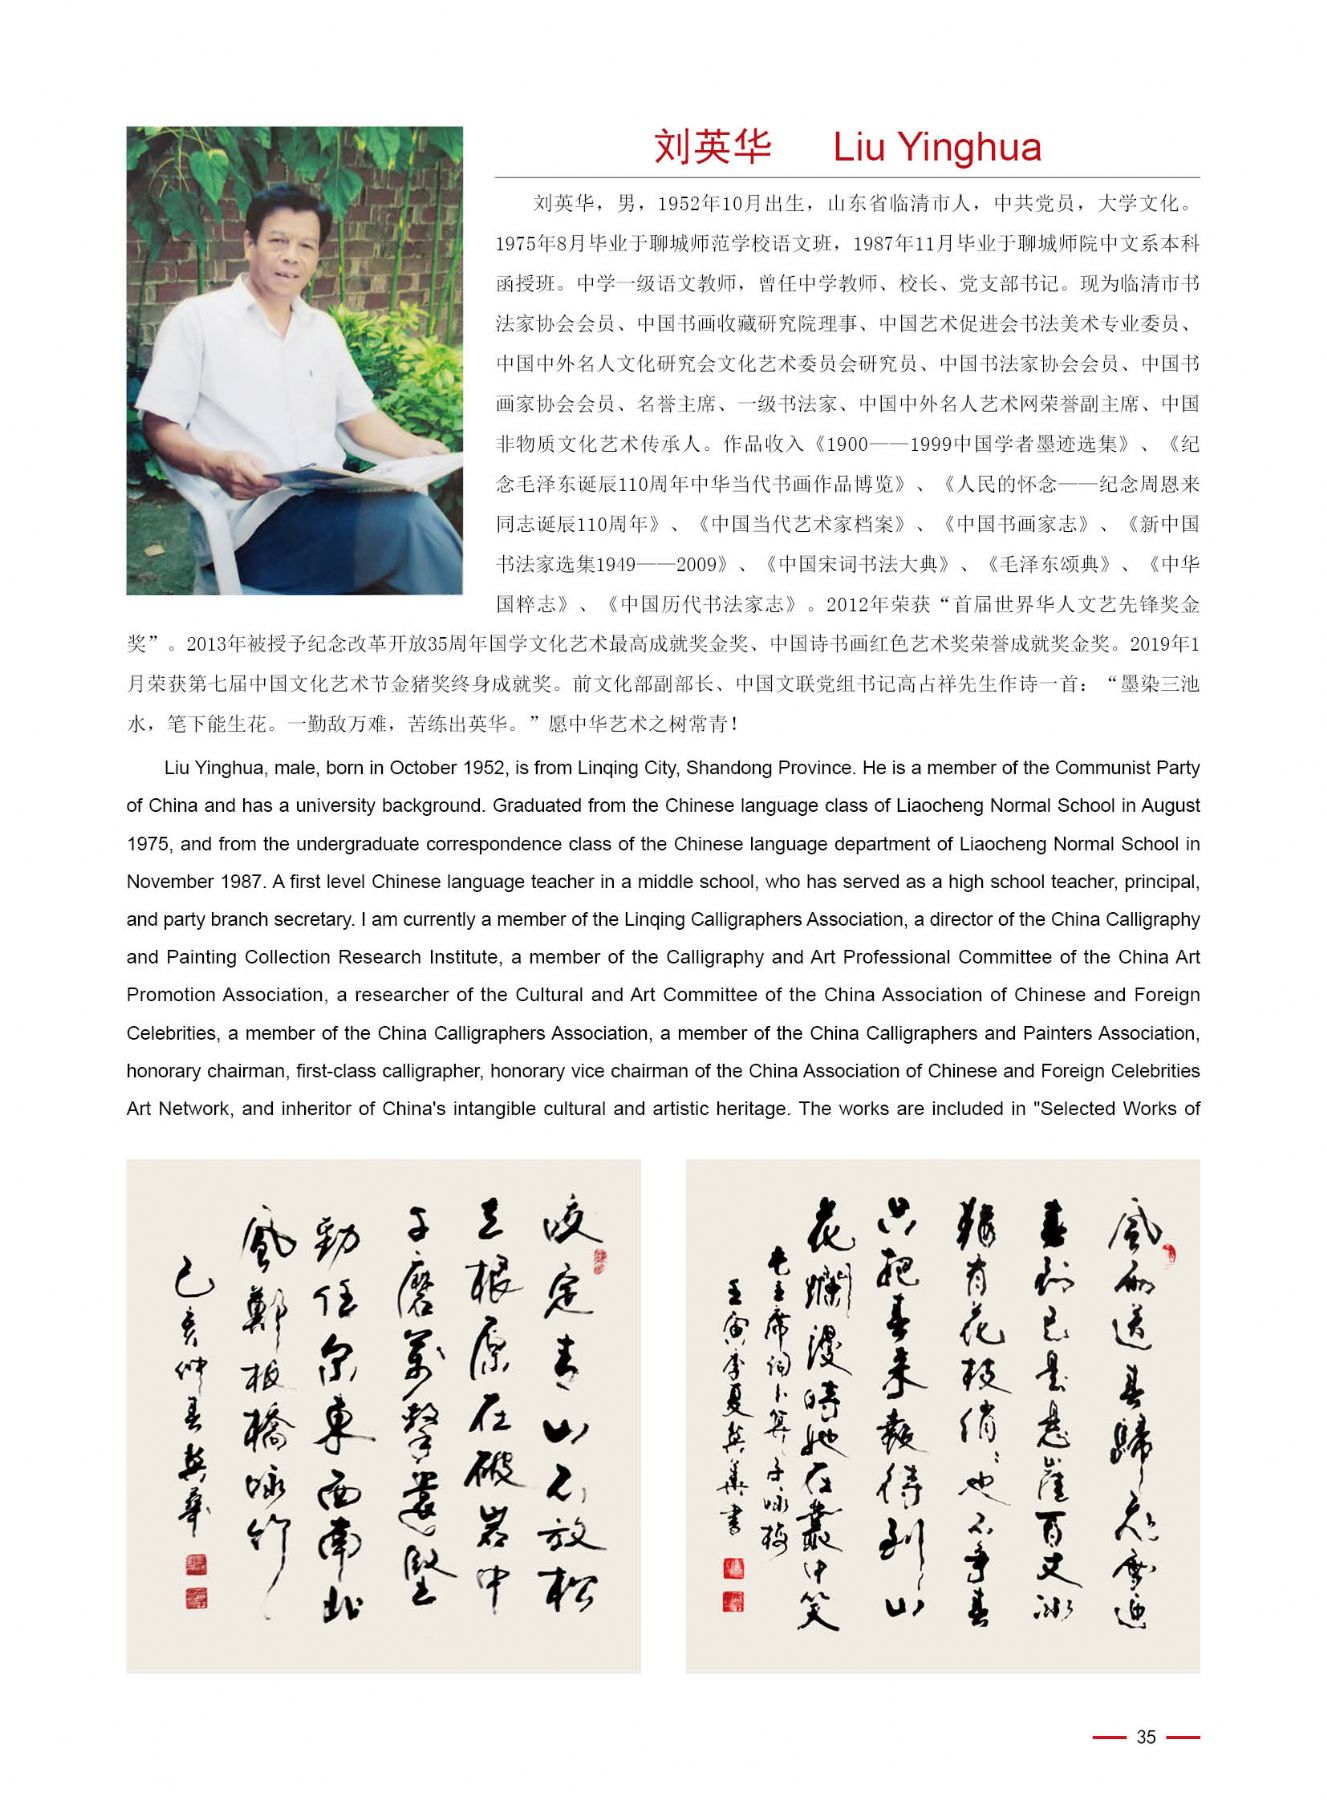 刘英华 Liu Yinghua
刘英华，男，1952年10月出生，山东省临清市人，中共党员，大学文化。
1975年8月毕业于聊城师范学校语文班，1987年11月毕业于聊城师院中文系本科
函授班。中学一级语文教师，曾任中学教师、校长、党支部书记。现为临清市书
法家协会会员、中国书画收藏研究院理事、中国艺术促进会书法美术专业委员、
中国中外名人文化研究会文化艺术委员会研究员、中国书法家协会会员、中国书
画家协会会员、名誉主席、一级书法家、中国中外名人艺术网荣誉副主席、中国
非物质文化艺术传承人。作品收入《1900——1999中国学者墨迹选集》、《纪
念毛泽东诞辰110周年中华当代书画作品博览》、《人民的怀念——纪念周恩来
同志诞辰110周年》、《中国当代艺术家档案》、《中国书画家志》、《新中国
书法家选集1949——2009》、《中国宋词书法大典》、《毛泽东颂典》、《中华
国粹志》、《中国历代书法家志》。2012年荣获“首届世界华人文艺先锋奖金
奖”。2013年被授予纪念改革开放35周年国学文化艺术最高成就奖金奖、中国诗书画红色艺术奖荣誉成就奖金奖。2019年1
月荣获第七届中国文化艺术节金猪奖终身成就奖。前文化部副部长、中国文联党组书记高占祥先生作诗一首：“墨染三池
水，笔下能生花。一勤敌万难，苦练出英华。”愿中华艺术之树常青！
Liu Yinghua, male, born in October 1952, is from Linqing City, Shandong Province. He is a member of the Communist Party
of China and has a university background. Graduated from the Chinese language class of Liaocheng Normal School in August
1975, and from the undergraduate correspondence class of the Chinese language department of Liaocheng Normal School in
November 1987. A first level Chinese language teacher in a middle school, who has served as a high school teacher, principal,
and party branch secretary. I am currently a member of the Linqing Calligraphers Association, a director of the China Calligraphy
and Painting Collection Research Institute, a member of the Calligraphy and Art Professional Committee of the China Art
Promotion Association, a researcher of the Cultural and Art Committee of the China Association of Chinese and Foreign
Celebrities, a member of the China Calligraphers Association, a member of the China Calligraphers and Painters Association,
honorary chairman, first-class calligrapher, honorary vice chairman of the China Association of Chinese and Foreign Celebrities
Art Network, and inheritor of China's intangible cultural and artistic heritage. The works are included in "Selected Works of
咬定青山不放松
立根原在破岩中
千磨萬擊還堅
勁任尔東西南北
風鄭板橋咏竹
己亥仲春英華
風雨送春歸飛雪迎
春到已是懸崖百丈冰
猶有花枝俏俏也不争春
只把春来報待到山
花爛漫時她在叢中笑
毛主席词卜算子咏梅
壬寅季夏英華書
35